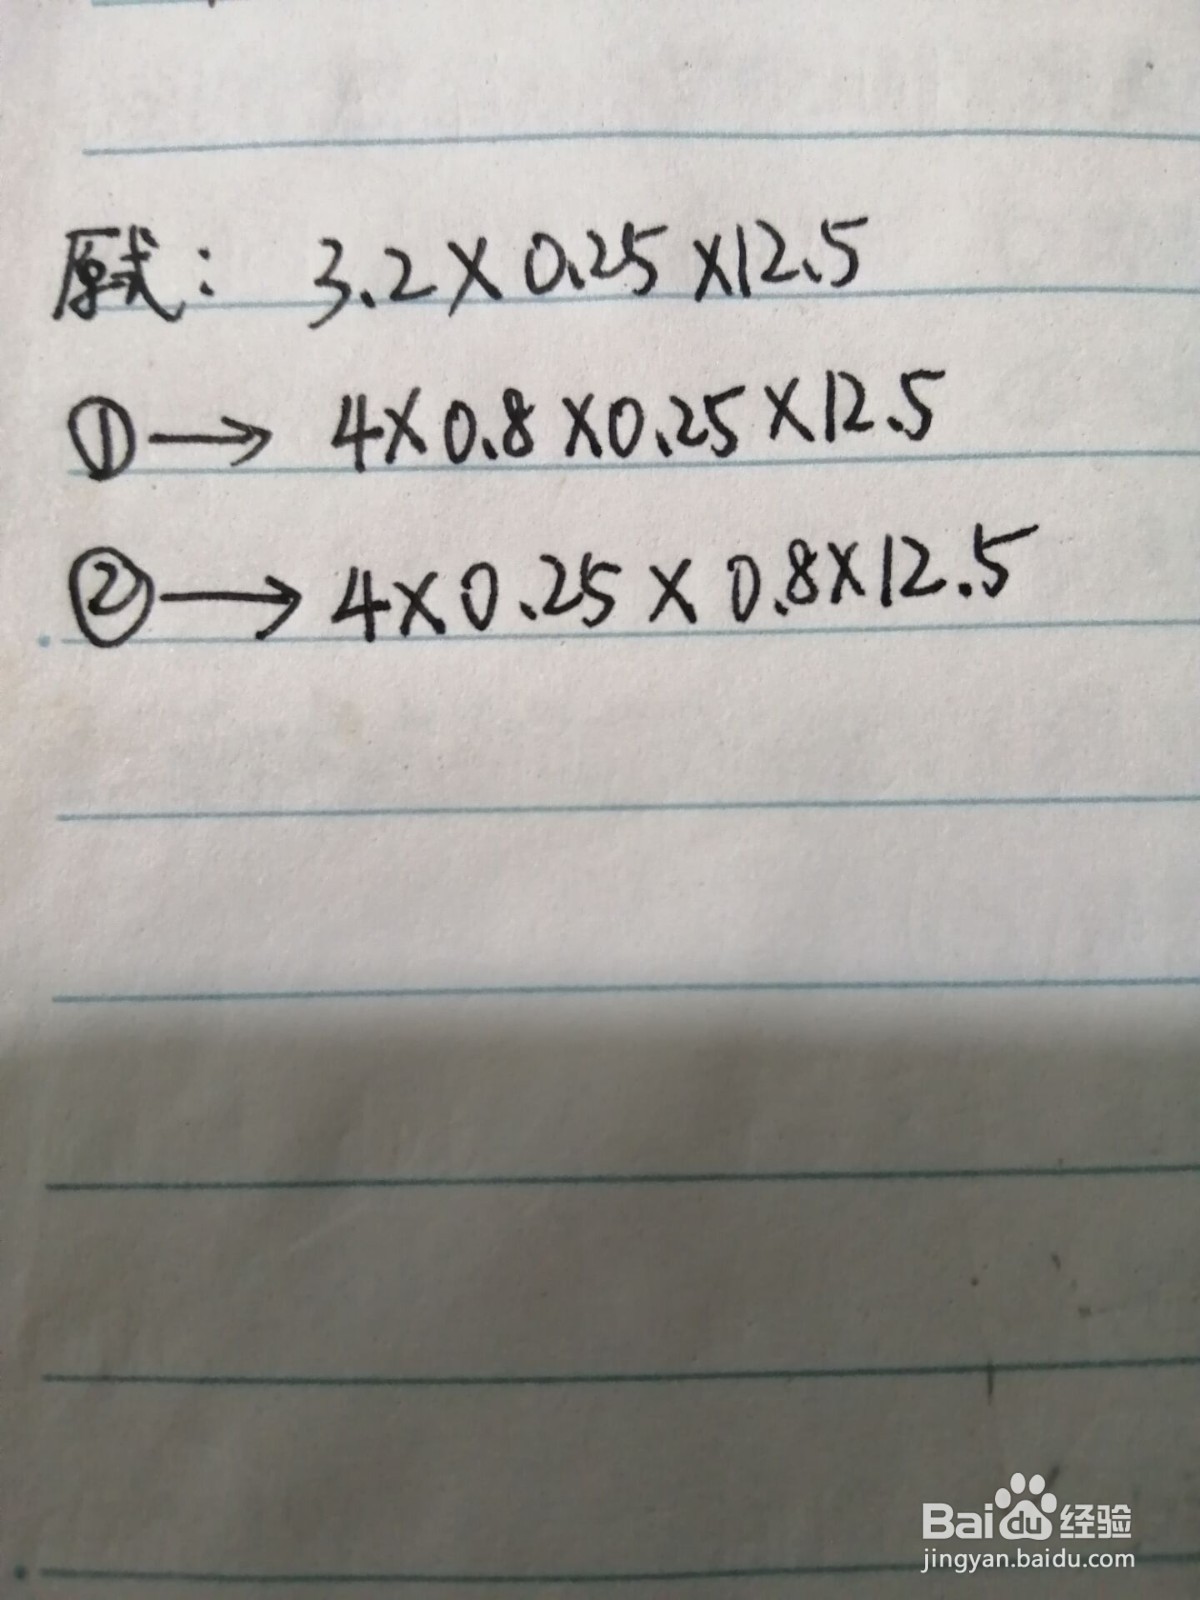 原式: 3.2×0.25×12.5
①→ 4×0.8×0.25×12.5
②→ 4×0.25×0.8×12.5
Baidu经验
jingyan.baidu.com